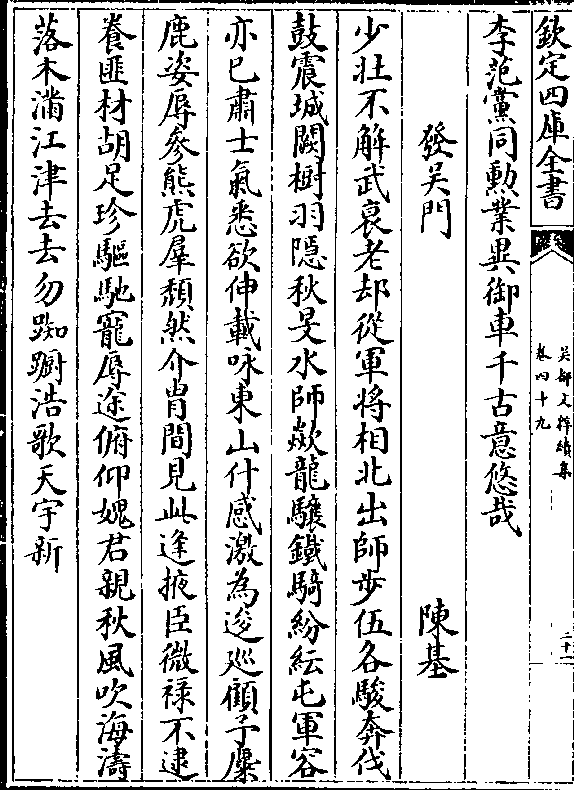 欽定四庫全書
吳都文粹續集
卷四十九
二十一
李范黨同勲業異御車千古意悠哉
發吳門 陳基
少壯不解武衰老却從軍將相北出師步伍各駿奔伐
鼓震城闕樹羽隠秋旻水師歘龍驤鐵騎紛紜屯軍容
亦已肅士氣悉欲伸載咏東山什感激為逡廵顧予麋
鹿姿辱參熊虎羣頽然介胄間見此逢掖臣微禄不逮
養匪材胡足珍驅馳寵辱途俯仰媿君親秋風吹海濤
落木滿江津去去勿踟蹰浩歌天宇新